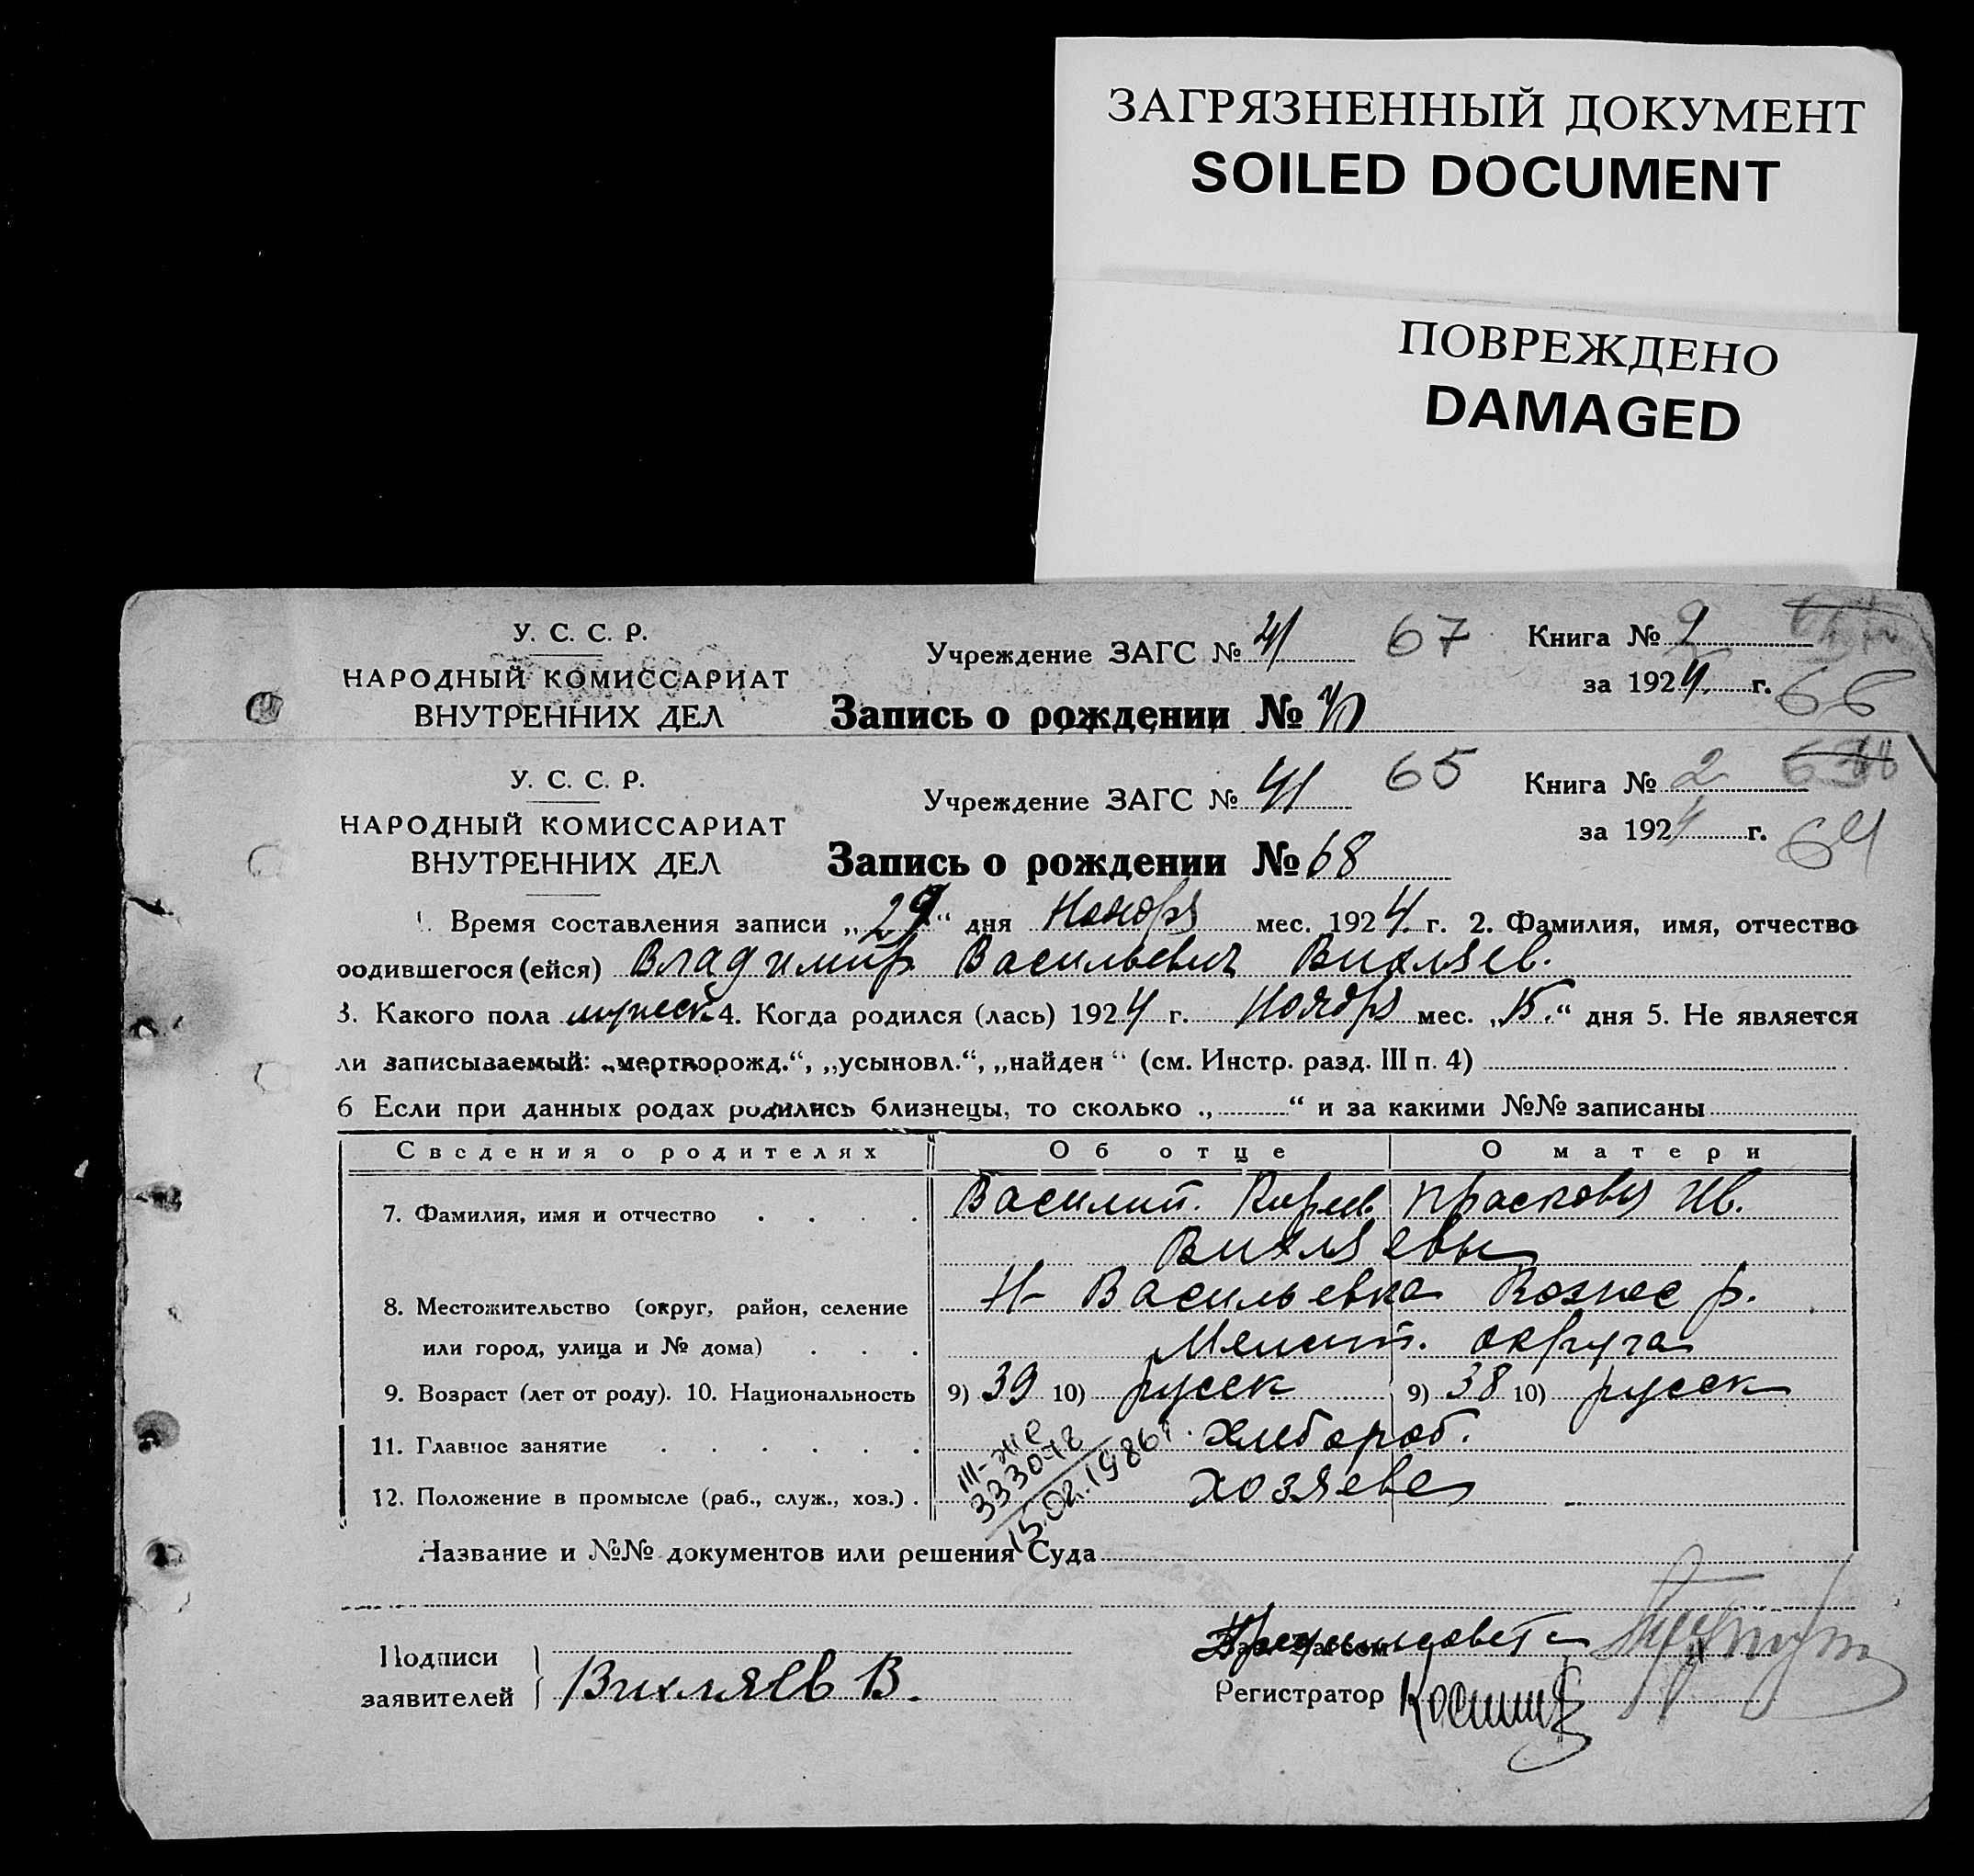 ЗАГРЯЗНЕННЫЙ ДОКУМЕНТ
SOILED DOCUMENT
ПОВРЕЖДЕНО
DAMAGED
У. С. С. Р.
НАРОДНЫЙ КОМИССАРИАТ
ВНУТРЕННИХ ДЕЛ
Учреждение ЗАГС № 41 67
Запись о рождении №
Книга № 2
за 1924 г. 66
У. С. С. Р.
НАРОДНЫЙ КОМИССАРИАТ
ВНУТРЕННИХ ДЕЛ
Учреждение ЗАГС № 41 65
Запись о рождении № 68
Книга № 2
за 1924 г. 64
Время составления записи „29“ дня Ноября мес. 1924 г. 2. Фамилия, имя, отчество
родившегося (ейся) Владимир Васильевич Вихляев.
3. Какого пола мужеск 4. Когда родился (лась) 1924 г. Ноября мес. „15.“ дня 5. Не является
ли записываемый: „мертворожд.“, „усыновл.“, „найден“ (см. Инстр. разд. III п. 4)
6 Если при данных родах родились близнецы, то сколько „ “ и за какими №№ записаны
Сведения о родителях Об отце О матери
7. Фамилия, имя и отчество Василий. Прасковья Ив.
Вихляевы
8. Местожительство (округ, район, селение Н- Васильевка Вознес р.
или город, улица и № дома) Мелит. округа
9. Возраст (лет от роду). 10. Национальность 9) 39 10) русск 9) 38 10) русск
11. Главное занятие хлебороб.
12. Положение в промысле (раб., служ., хоз.) хозяева
III-ЖС
333048
15.02.1986г.
Название и №№ документов или решения Суда
Подписи
заявителей Вихляев В.
Регистратор